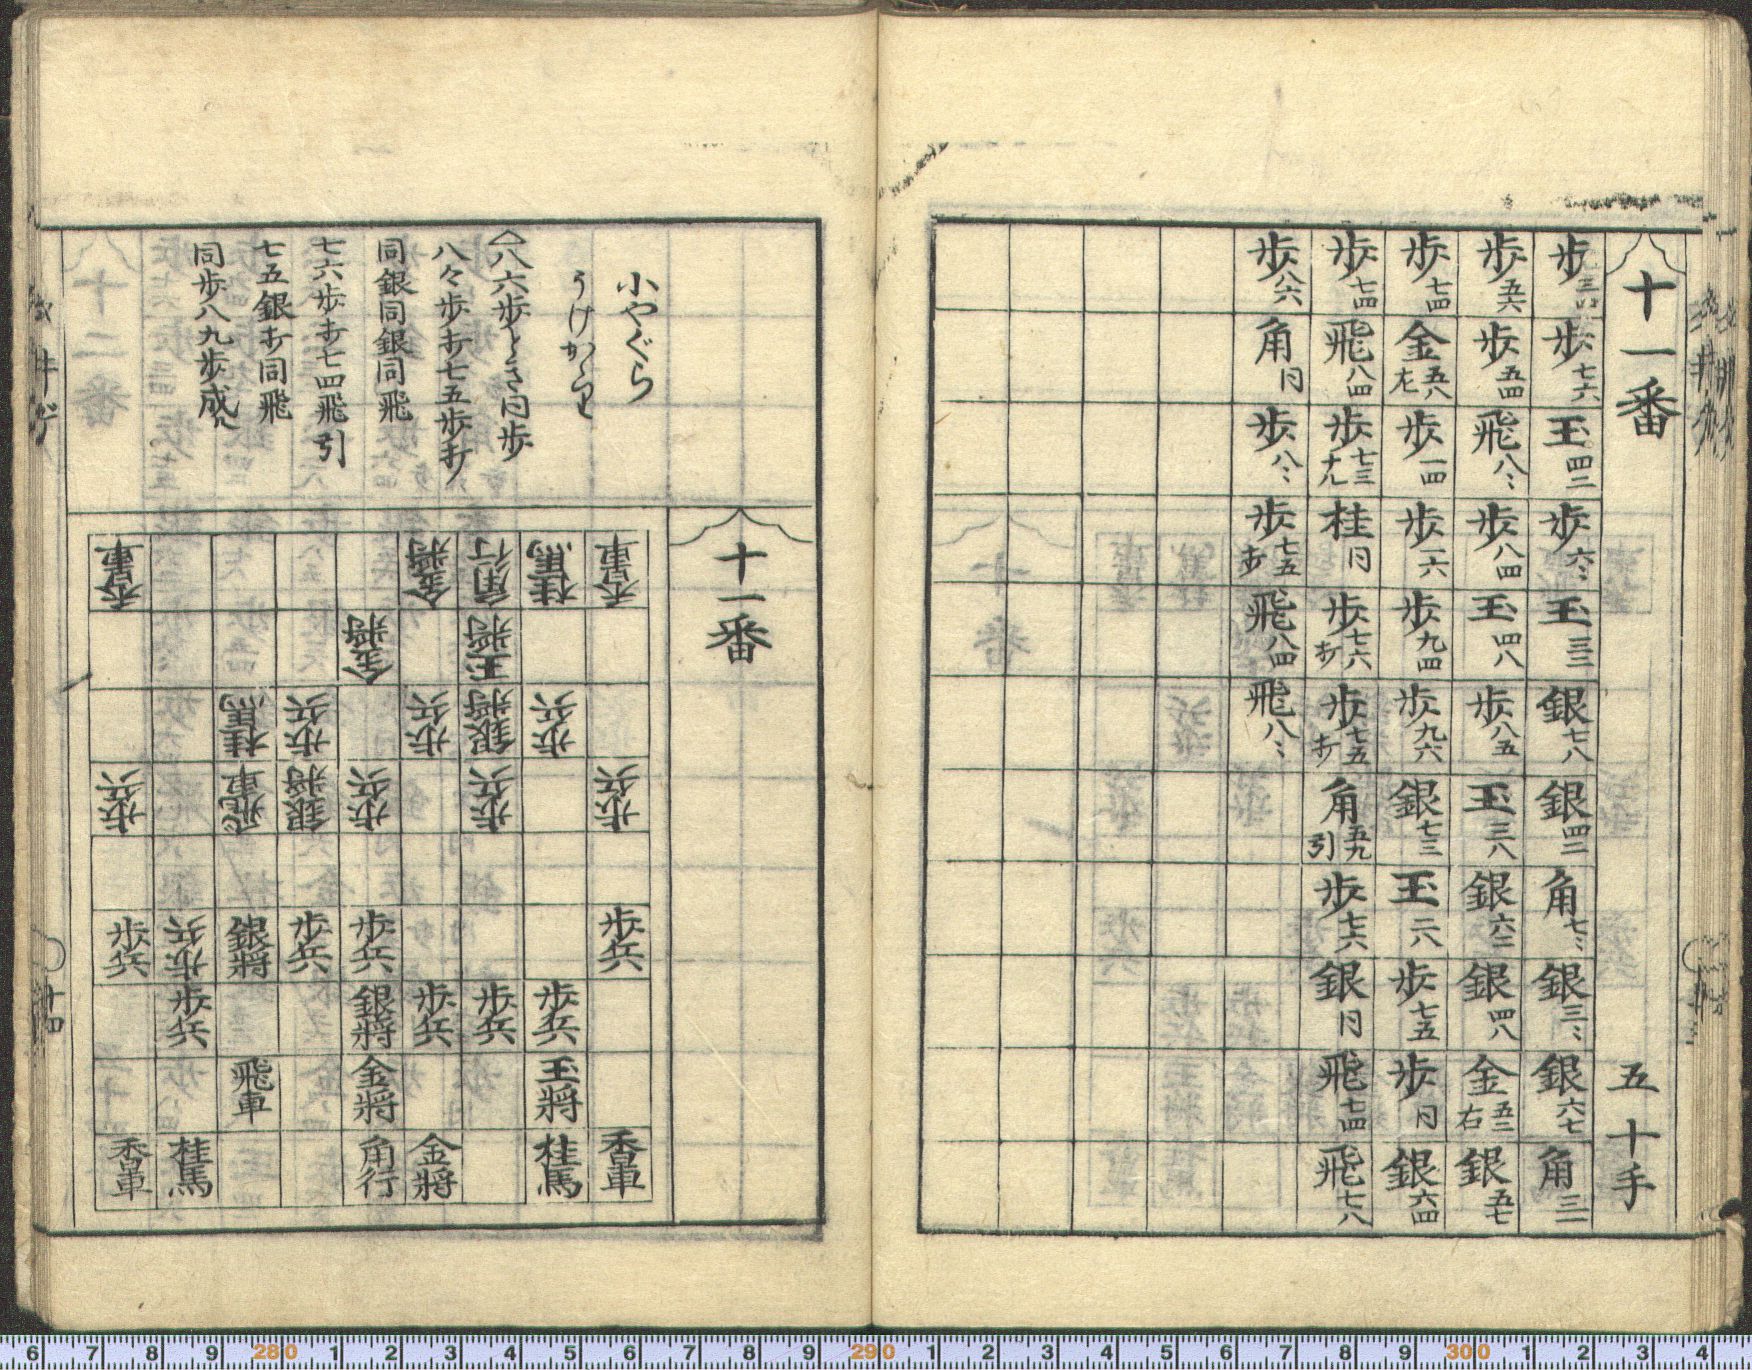 十一番 五十手
歩 歩七六 玉四二 歩六〻 玉三二 銀七八 銀四二 角七〻 銀三〻 銀六七 角三一
歩五六 歩五四 飛八〻 歩八四 玉四八 歩八五 玉三八 銀六二 銀四八 金五二右 銀五七
歩七四 金五八左 歩一四 歩一六 歩九四 歩九六 銀七三 玉二八 歩七五 歩同 銀六四
歩七四 飛八四 歩七三ナル 桂同 歩七六打 歩七五打 角五九引 歩七六 銀同 飛七四 飛七八
歩八六 角同 歩八〻 歩七五打 飛八四 飛八〻
小やぐら
うけかゝり
八六歩とき同歩
八々歩打七五歩打
同銀同銀同飛
七六歩打七四飛引
七五銀打同飛
同歩八九歩成ル
十一番
香車 桂馬 角行 金將 香車
玉將 金將
歩兵 銀將 歩兵 歩兵 桂馬
歩兵 歩兵 歩兵 銀將 飛車 歩兵
歩兵 歩兵 歩兵 銀將 歩兵 歩兵
歩兵 歩兵 歩兵 銀將 歩兵
玉將 金將 飛車
香車 桂馬 金將 角行 桂馬 香車
十四